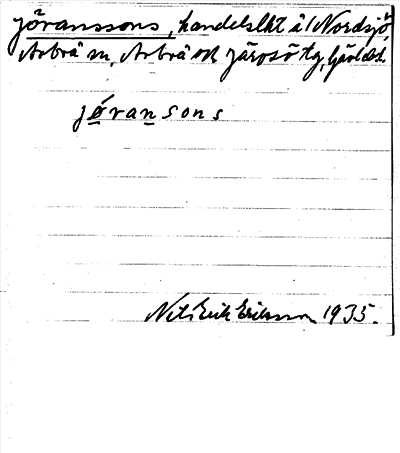 Jöranssons, handelslht å 1 Nordsjö,
Arbrå sn, Arbrå och Järvsö tg, Gävlebl.
jöransons
Nils Erik Eriksson 1935.